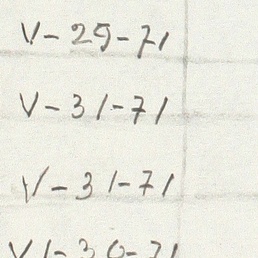 V-29-71
V-31-71
V-31-71
VI-30-71